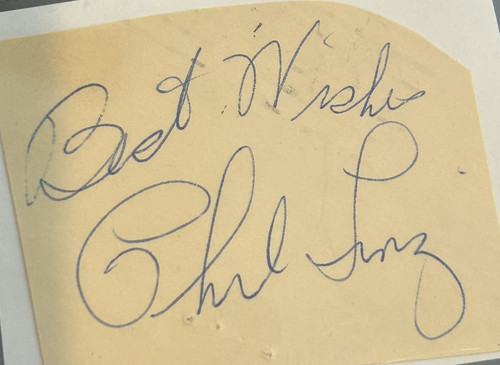 Best Wishes
Phil Linz